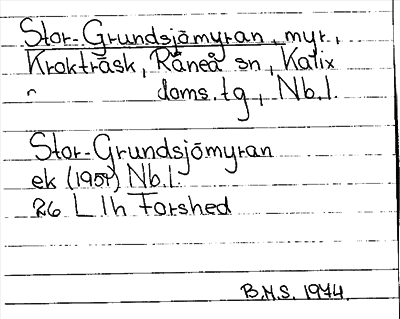 Stor-Grundsjömyran, myr,
Kroktråsk, Råneå sn, Kalix
doms.tg, Nb.l.
Stor-Grundsjömyran
ek (1957) Nb.l.
26 L lh Forshed
B.M.S. 1974.